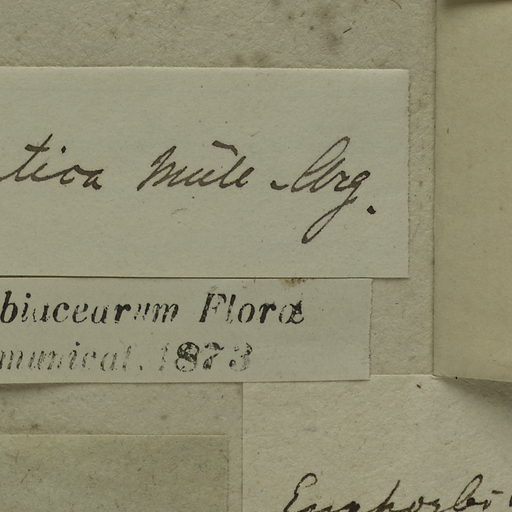 tica Müll Arg.
biacearum Floræ
municat. 1873
Euphorbi